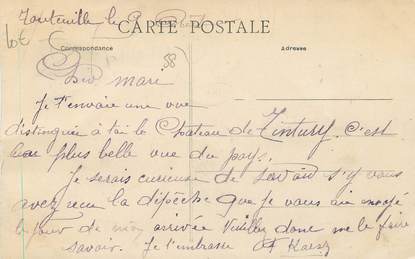 le 9
CARTE POSTALE
Lot
Correspondance
Adresse
58
mari
Je t'envoie une vue
distinguée à toi le Château de Tintury. C'est
la plus belle vue du pays.
Je serais curieuse de savoir s'y vous
avez reçu la dépêche que je vous ai envoyé
le jour de mon arrivée Veuillez donc me le faire
savoir. Je t'embrasse